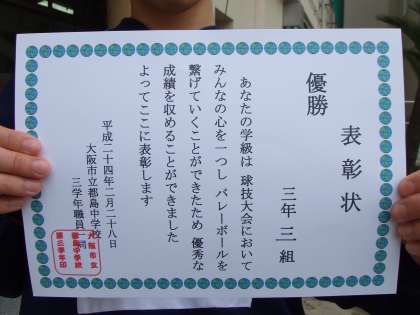 表彰状
優勝
三年三組
あなたの学級は 球技大会において
みんなの心を一つし バレーボールを
繋げていくことができたため 優秀な
成績を収めることができました
よってここに表彰します
平成二十四年二月二十八日
大阪市立都島中学校
三学年職員一同
大阪市立
都島中学校
第三学年印